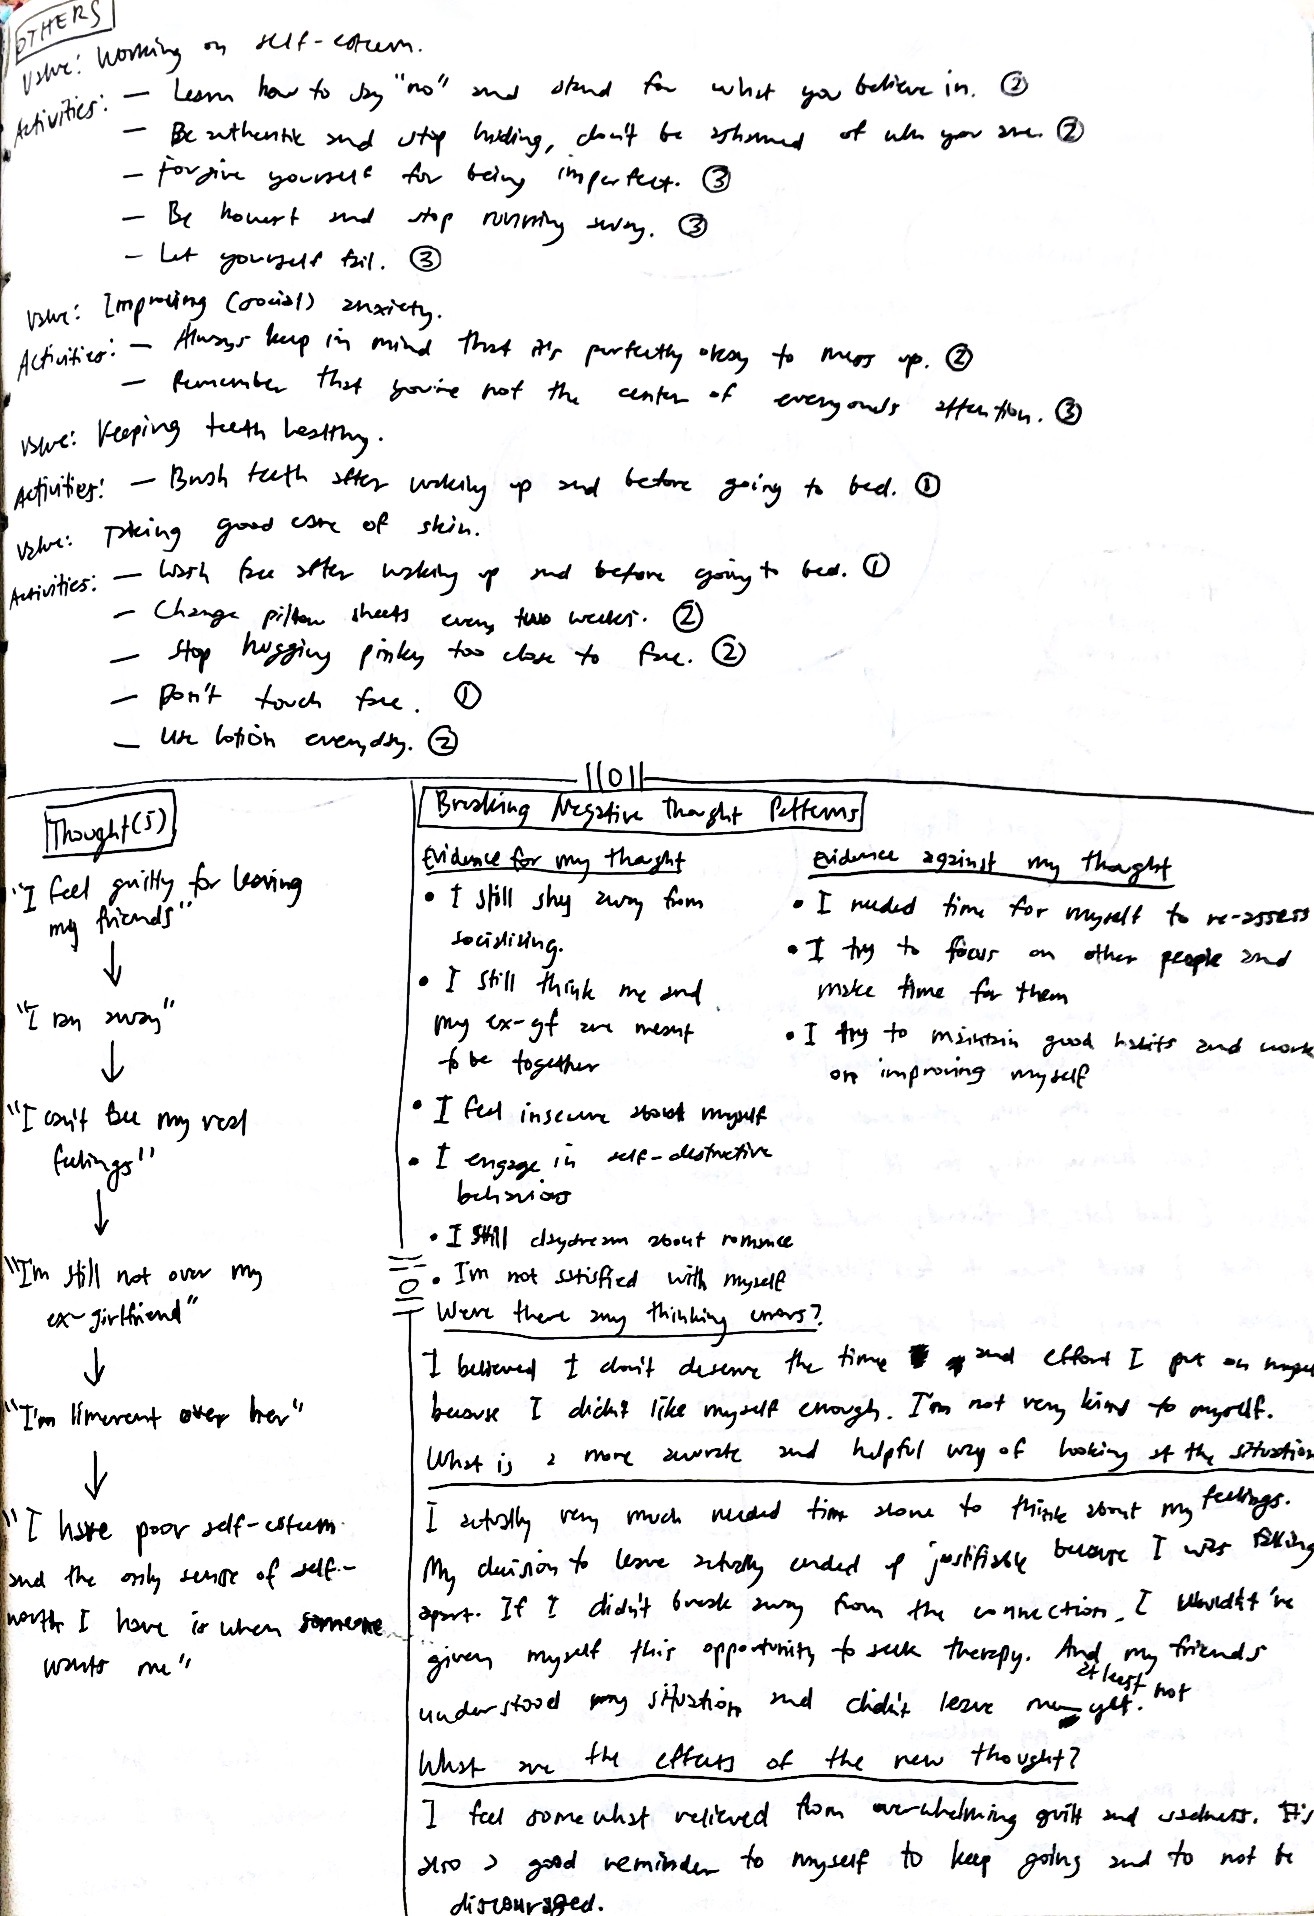 OTHERS
Value: Working on self-esteem.
Activities: — Learn how to say "no" and stand for what you believe in. ②
— Be authentic and stop hiding, don't be ashamed of who you are. ②
— Forgive yourself for being imperfect. ③
— Be honest and stop running away. ③
— Let yourself fail. ③
Value: Improving (social) anxiety.
Activities: — Always keep in mind that it's perfectly okay to mess up. ②
— Remember that you're not the center of everyone's attention. ③
Value: Keeping teeth healthy.
Activities: — Brush teeth after waking up and before going to bed. ①
Value: Taking good care of skin.
Activities: — Wash face after waking up and before going to bed. ①
— Change pillow sheets every two weeks. ②
— Stop hugging pinky too close to face. ②
— Don't touch face. ①
— Use lotion everyday. ②
Thought(s)
"I feel guilty for leaving
my friends"
↓
"I ran away"
↓
"I can't face my real
feelings"
↓
"I'm still not over my
ex-girlfriend"
↓
"I'm limerent over her"
↓
"I have poor self-esteem
and the only sense of self-
worth I have is when someone
wants me"
Breaking Negative Thought Patterns
Evidence for my thought
• I still shy away from
socialising.
• I still think me and
my ex-gf are meant
to be together
• I feel insecure about myself
• I engage in self-destructive
behaviors
• I still daydream about romance
• I'm not satisfied with myself
Evidence against my thought
• I needed time for myself to re-assess
• I try to focus on other people and
make time for them
• I try to maintain good habits and work
on improving myself
Were there any thinking errors?
I believed I don't deserve the time and effort I put on myself
because I didn't like myself enough. I'm not very kind to myself.
What is a more accurate and helpful way of looking at the situation
I actually very much needed time alone to think about my feelings.
My decision to leave actually ended up justifiable because I was falling
apart. If I didn't break away from the connection, I wouldn't've
given myself this opportunity to seek therapy. And my friends
understood my situation and didn't leave me at least not yet.
What are the effects of the new thought?
I feel somewhat relieved from overwhelming guilt and sadness. It's
also a good reminder to myself to keep going and to not be
discouraged.